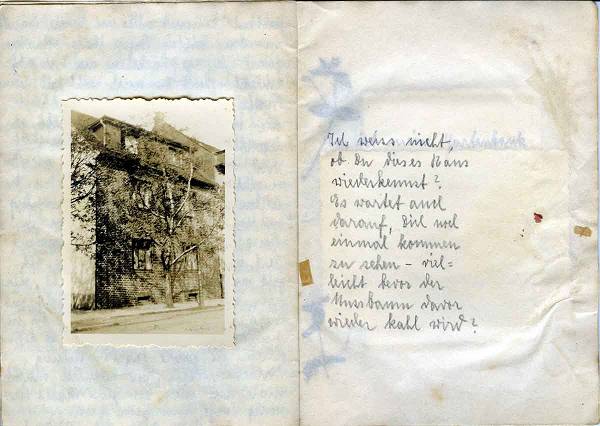 Ich weiss nicht,
ob Du dieses Haus
wiederkennst?
Es wartet auch
darauf, Dich wol
einmal kommen
zu sehen – viel=
leicht bevor der
Nussbaum davor
wieder kahl wird?